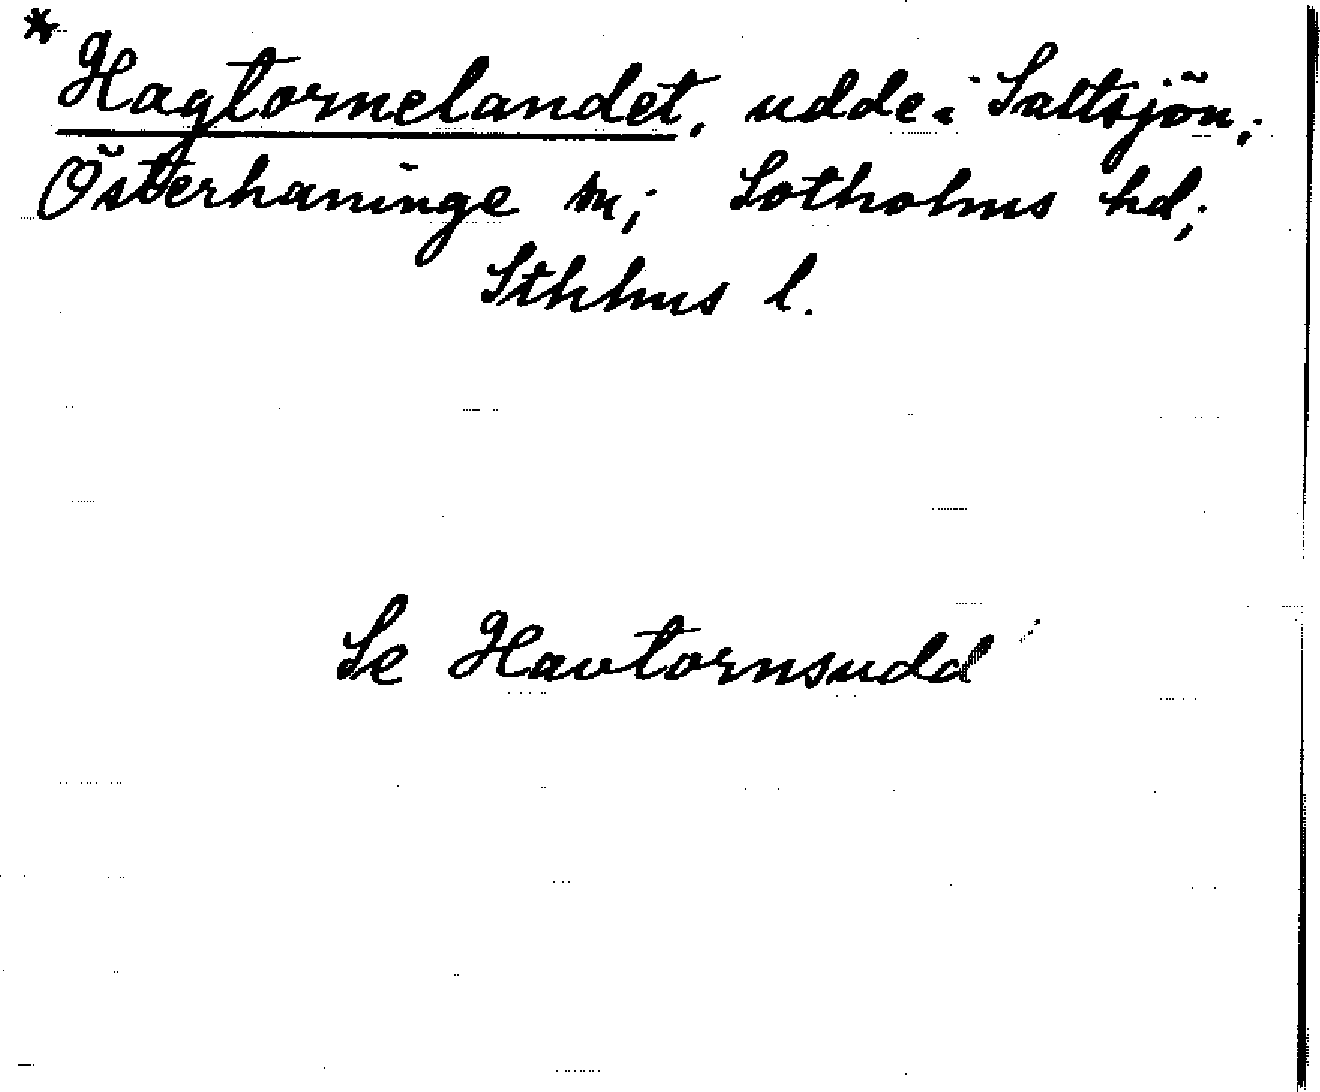 * Hagtornelandet, udde i Saltsjön;
Österhaninge sn; Sotholms hd;
Sthlms l.
Se Havtornsudd